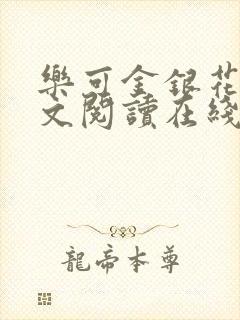 樂可金銀花
文閱讀在綫
龍帝本尊